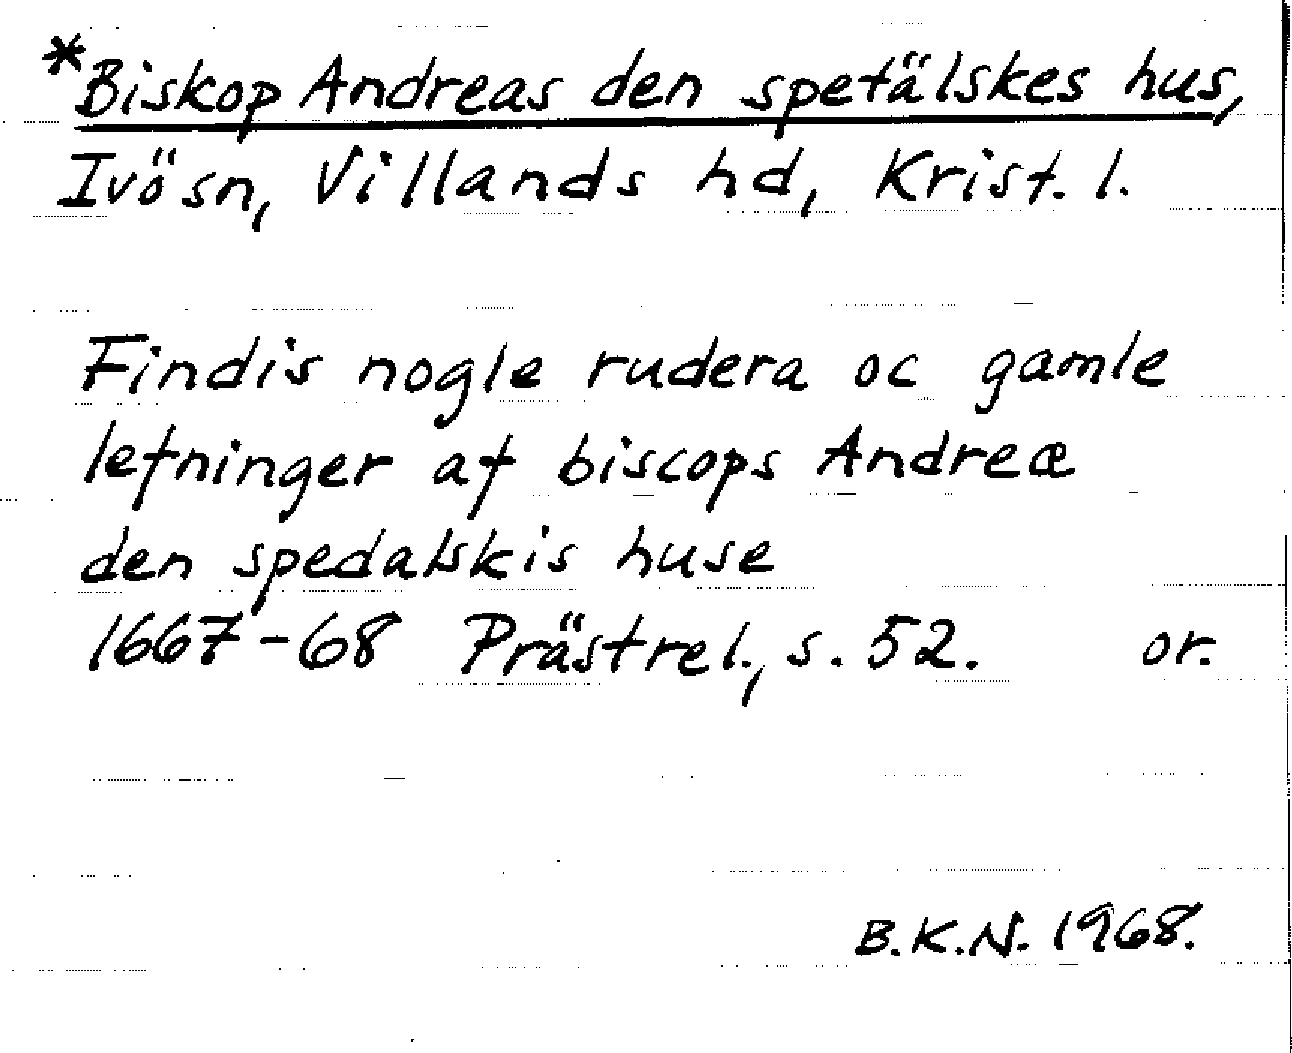 *Biskop Andreas den spetälskes hus,
Ivösn, Villands hd, Krist. l.
Findis nogle rudera oc gamle
lefninger af biscops Andreæ
den spedalskis huse
1667-68 Prästrel., s. 52. or.
B.K.N. 1968.